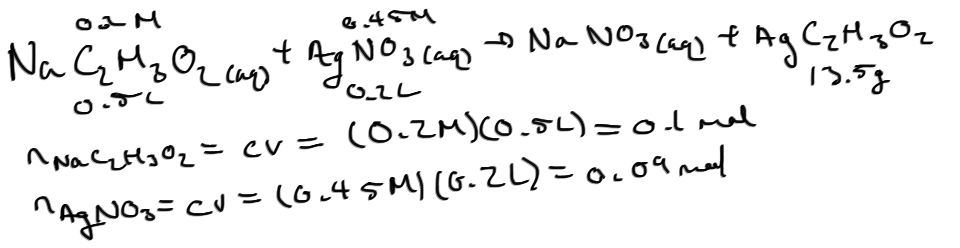 0.2M 0.45M
NaC₂H₃O₂(aq) + AgNO₃(aq) → NaNO₃(aq) + AgC₂H₃O₂
0.5L 0.2L 13.5g
nNaC₂H₃O₂ = cv = (0.2M)(0.5L) = 0.1 mol
nAgNO₃ = cv = (0.45M)(0.2L) = 0.09 mol